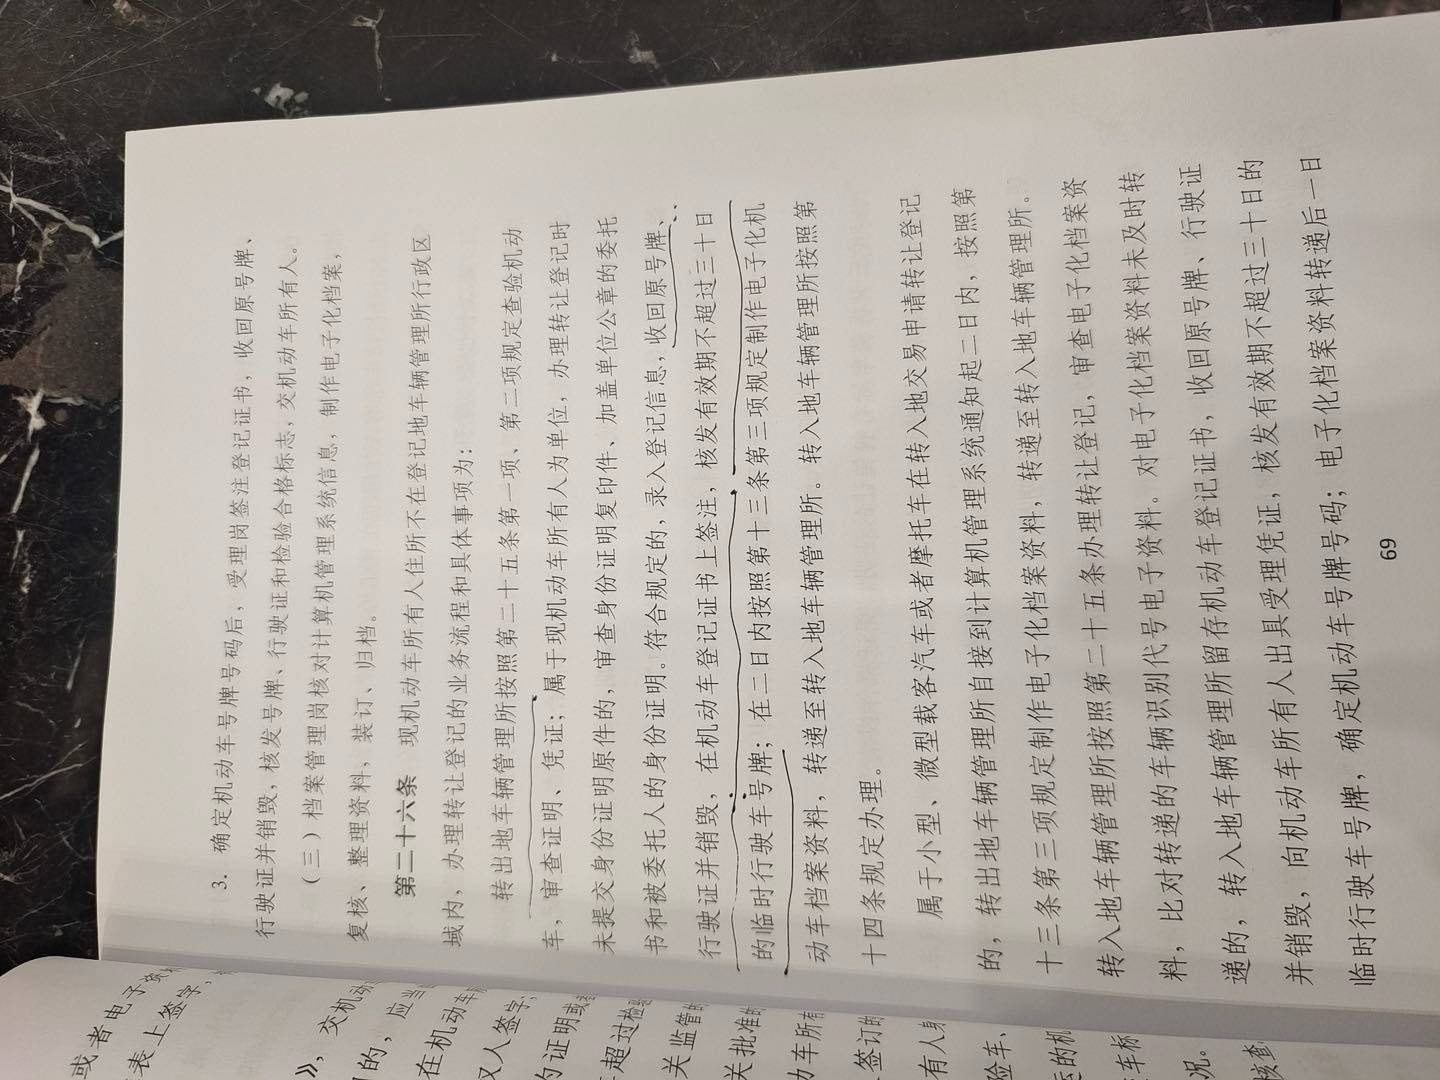 3. 确定机动车号牌号码后，受理岗签注登记证书，收回原号牌、
行驶证并销毁，核发号牌、行驶证和检验合格标志，交机动车所有人。
（三）档案管理岗核对计算机管理系统信息，制作电子化档案，
复核、整理资料，装订、归档。
第二十六条 现机动车所有人住所不在登记地车辆管理所行政区
域内，办理转让登记的业务流程和具体事项为：
转出地车辆管理所按照第二十五条第一项、第二项规定查验机动
车，审查证明、凭证；属于现机动车所有人为单位，办理转让登记时
未提交身份证明原件的，审查身份证明复印件、加盖单位公章的委托
书和被委托人的身份证明。符合规定的，录入登记信息，收回原号牌、
行驶证并销毁，在机动车登记证书上签注，核发有效期不超过三十日
的临时行驶车号牌；在二日内按照第十三条第三项规定制作电子化机
动车档案资料，转递至转入地车辆管理所。转入地车辆管理所按照第
十四条规定办理。
属于小型、微型载客汽车或者摩托车在转入地交易申请转让登记
的，转出地车辆管理所自接到计算机管理系统通知起二日内，按照第
十三条第三项规定制作电子化档案资料，转递至转入地车辆管理所。
转入地车辆管理所按照第二十五条办理转让登记，审查电子化档案资
料，比对转递的车辆识别代号电子资料。对电子化档案资料未及时转
递的，转入地车辆管理所留存机动车登记证书，收回原号牌、行驶证
并销毁，向机动车所有人出具受理凭证，核发有效期不超过三十日的
临时行驶车号牌，确定机动车号牌号码；电子化档案资料转递后一日
69
或者电子资
表上签字，
》，交机动
的，应当
在机动车所
人签字，
证明或
超过检验
关监管的
关批准的
动车所有
签订的
有人身
验车、
的机
车标
况。
核查